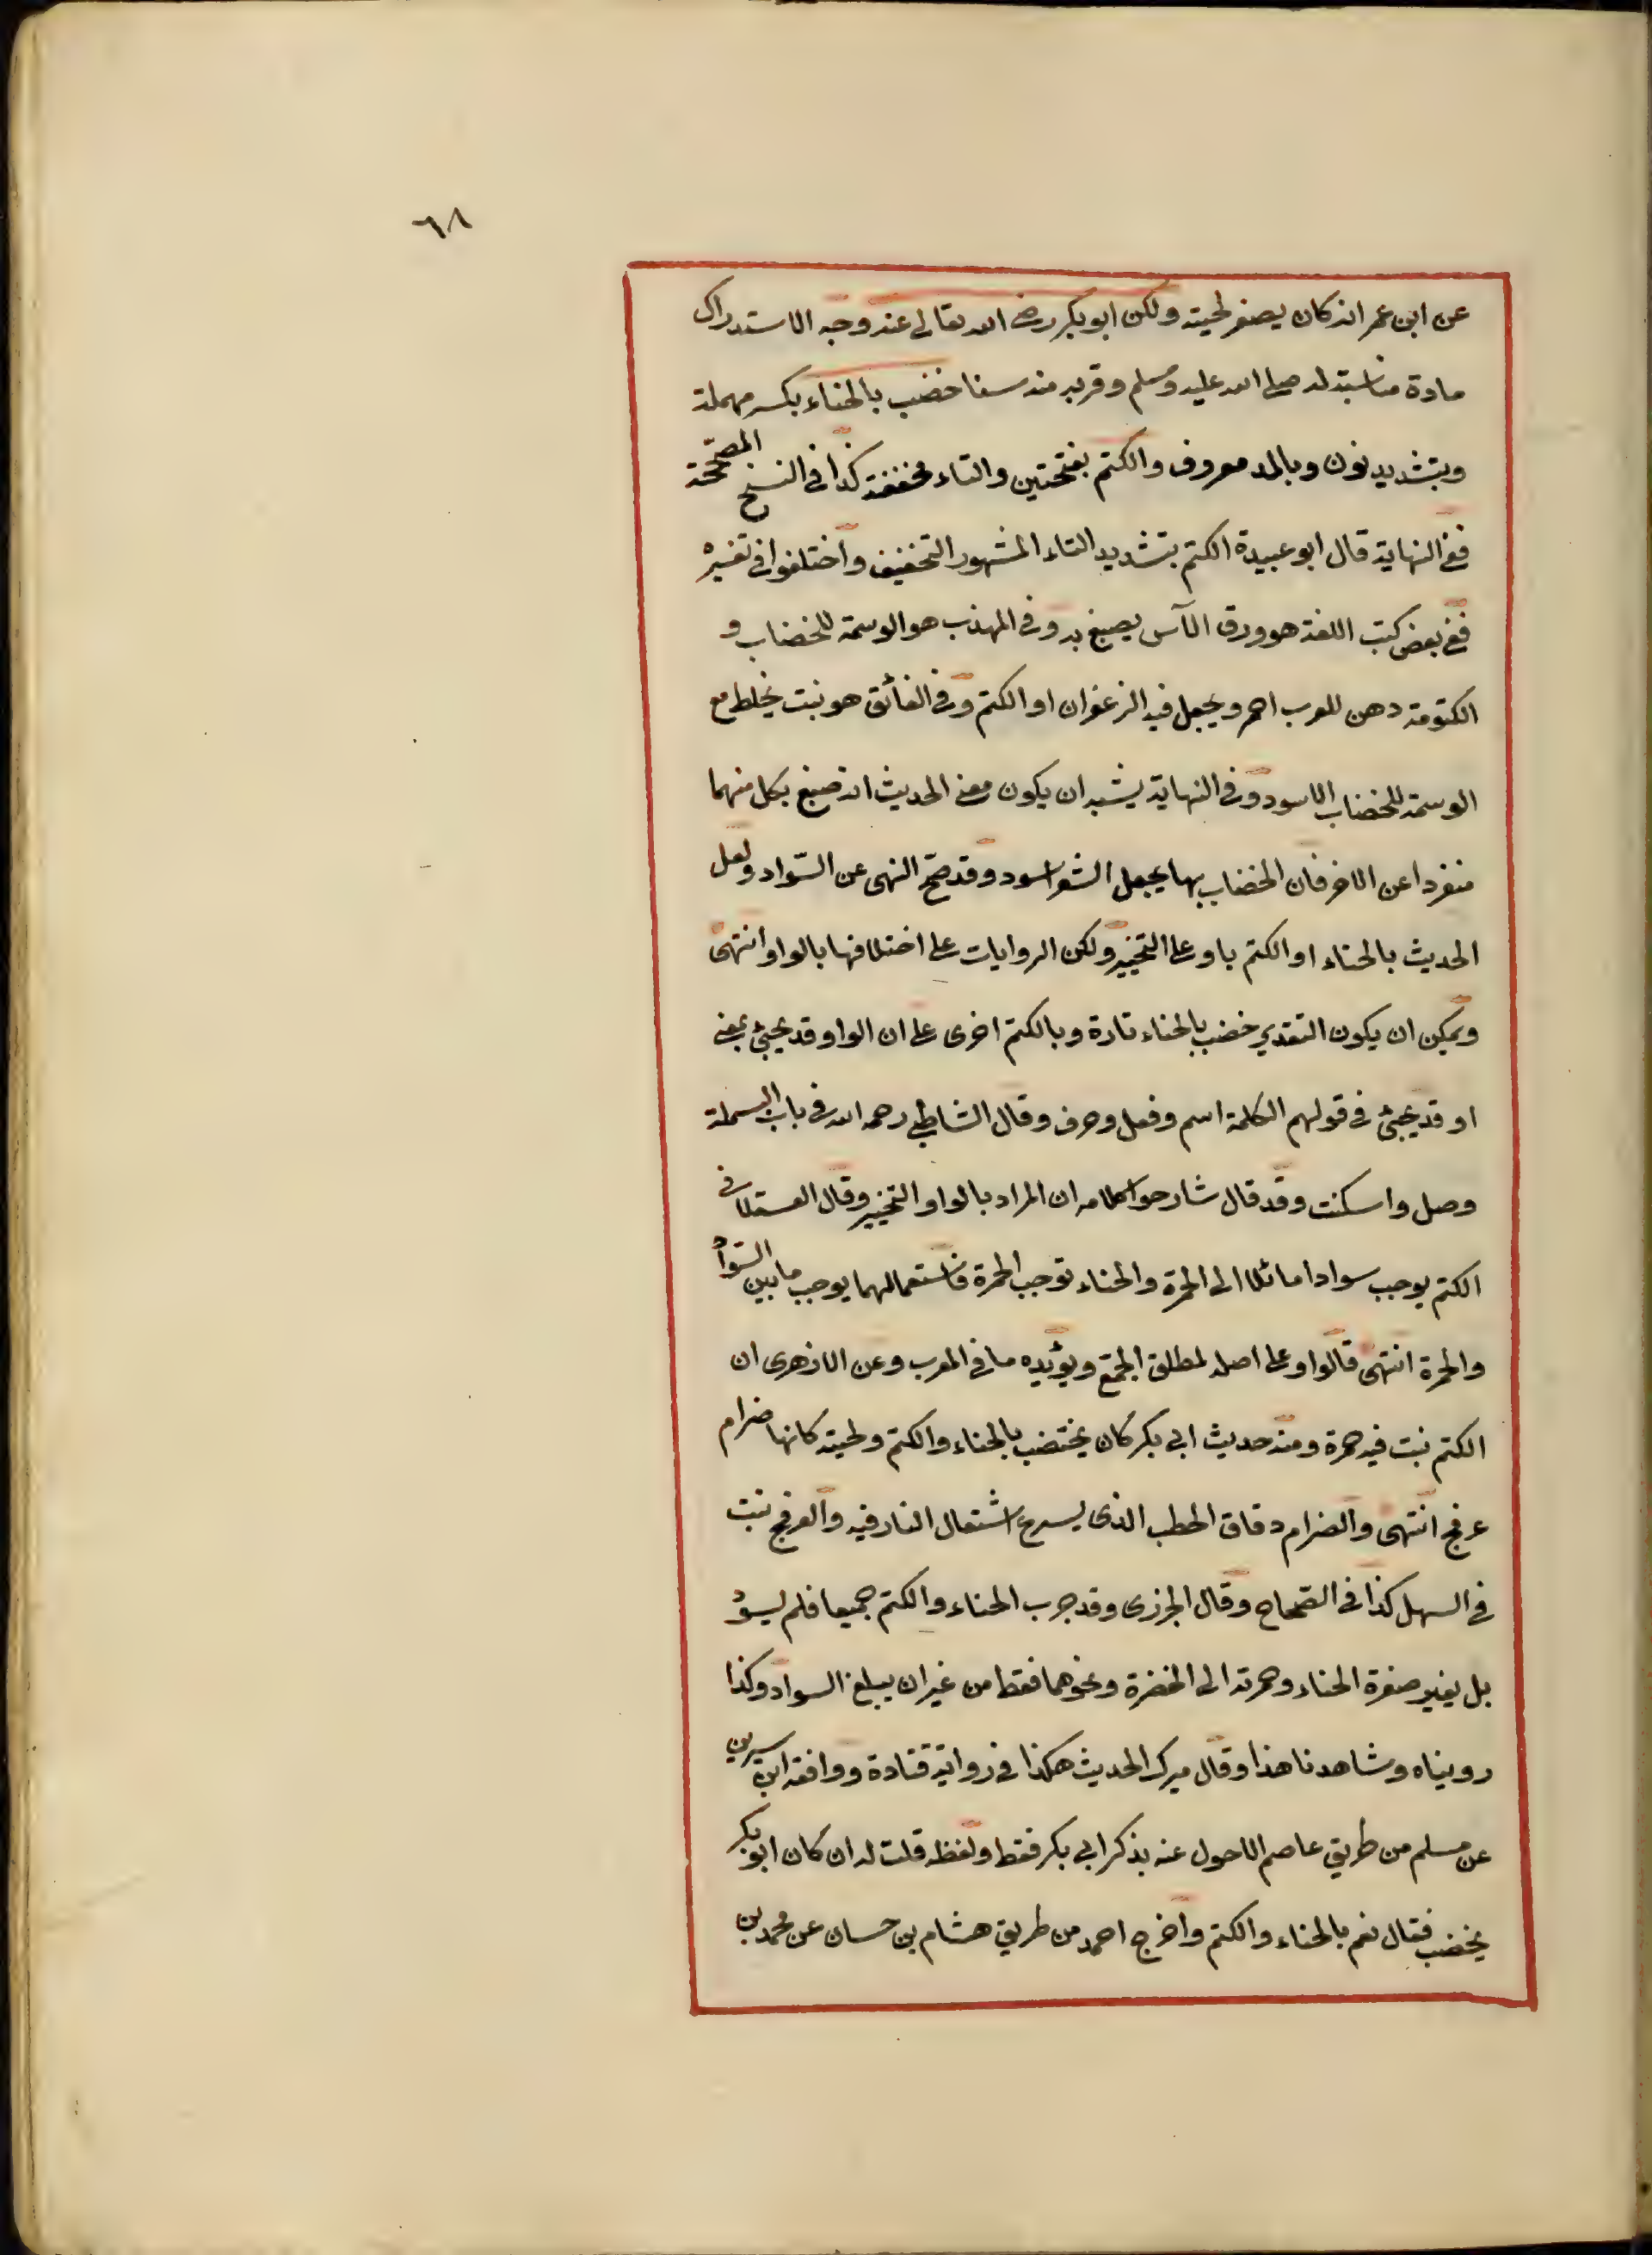 ٦٨
عن ابن عمر انه كان يصفر لحيته ولكن ابو بكر رضى الله تعالى عنه وجه الاستدراك
مادة مناسبته له صلى الله عليه وسلم وقربه منه سنا خضب بالحناء بكسر مهملة
وبتشديد نون وبالمد معروف والكتم بفتحتين والتاء مخففة كذا فى النسخ المصححة
ففى النهاية قال ابو عبيدة الكتم بتشديد التاء المشهور التخفيف واختلفوا فى تفسيره
ففى بعض كتب اللغة هو ورق الآس يصبغ به وفى المهذب هو الوسمة للخضاب و
الكتومة دهن للعرب احمر ويجعل فيه الزعفران او الكتم وفى الفائق هو نبت يخلط مع
الوسمة للخضاب الاسود وفى النهاية يشبه ان يكون معنى الحديث انه صبغ بكل منهما
منفردا عن الاخر فان الخضاب بها يجعل الشعر اسود وقد صح النهى عن السّواد ولعل
الحديث بالحناء او الكتم باو على التخيير ولكن الروايات على اختلافها بالواو انتهى
ويمكن ان يكون التقدير خضب بالحناء تارة وبالكتم اخرى على ان الواو قد يجئ بمعنى
او قد يجئ فى قولهم الكلمة اسم وفعل وحرف وقال الشاطبى رحمه الله فى باب البسملة
وصل واسكنت وقد قال شارحوا كلامه ان المراد بالواو التخيير وقال العسقلانى
الكتم يوجب سوادا مائلا الى الحمرة والحناء توجب الحمرة فاستعمالهما يوجب ما بين السّواد
والحمرة انتهى قالواو على اصله لمطلق الجمع ويؤيده ما فى المغرب وعن الازهرى ان
الكتم نبت فيه حمرة ومنه حديث ابى بكر كان يختضب بالحناء والكتم ولحيته كانها ضرام
عرفج انتهى والضرام دقاق الحطب الذى يسرع اشتعال النار فيه والعرفج نبت
فى السهل كذا فى الصّحاح وقال الجزرى وقد جرب الحناء والكتم جميعا فلم يسوّد
بل يغير صفرة الحناء وحمرته الى الخضرة ونحوهما فقط من غير ان يبلغ السواد وكذا
رويناه وشاهدنا هذا وقال ميرك الحديث هكذا فى رواية قتادة ووافقه ابن سيرين
عن مسلم من طريق عاصم الاحول عنه بذكر ابى بكر فقط ولفظه قلت له ان كان ابو بكر
يخضب فقال نعم بالحناء والكتم واخرج احمد من طريق هشام بن حسان عن محمد بن